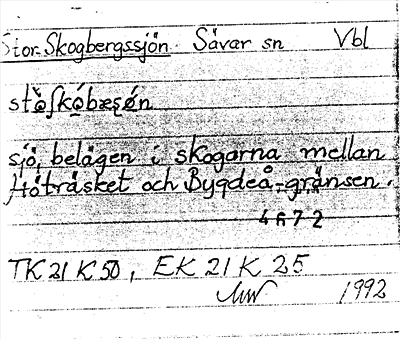 Stor-Skogbergssjön Sävar sn Vbl
sjö, belägen i skogarna mellan
Höträsket och Bygdeå-gränsen.
4672
TK 21 K 50, EK 21 K 25
1992